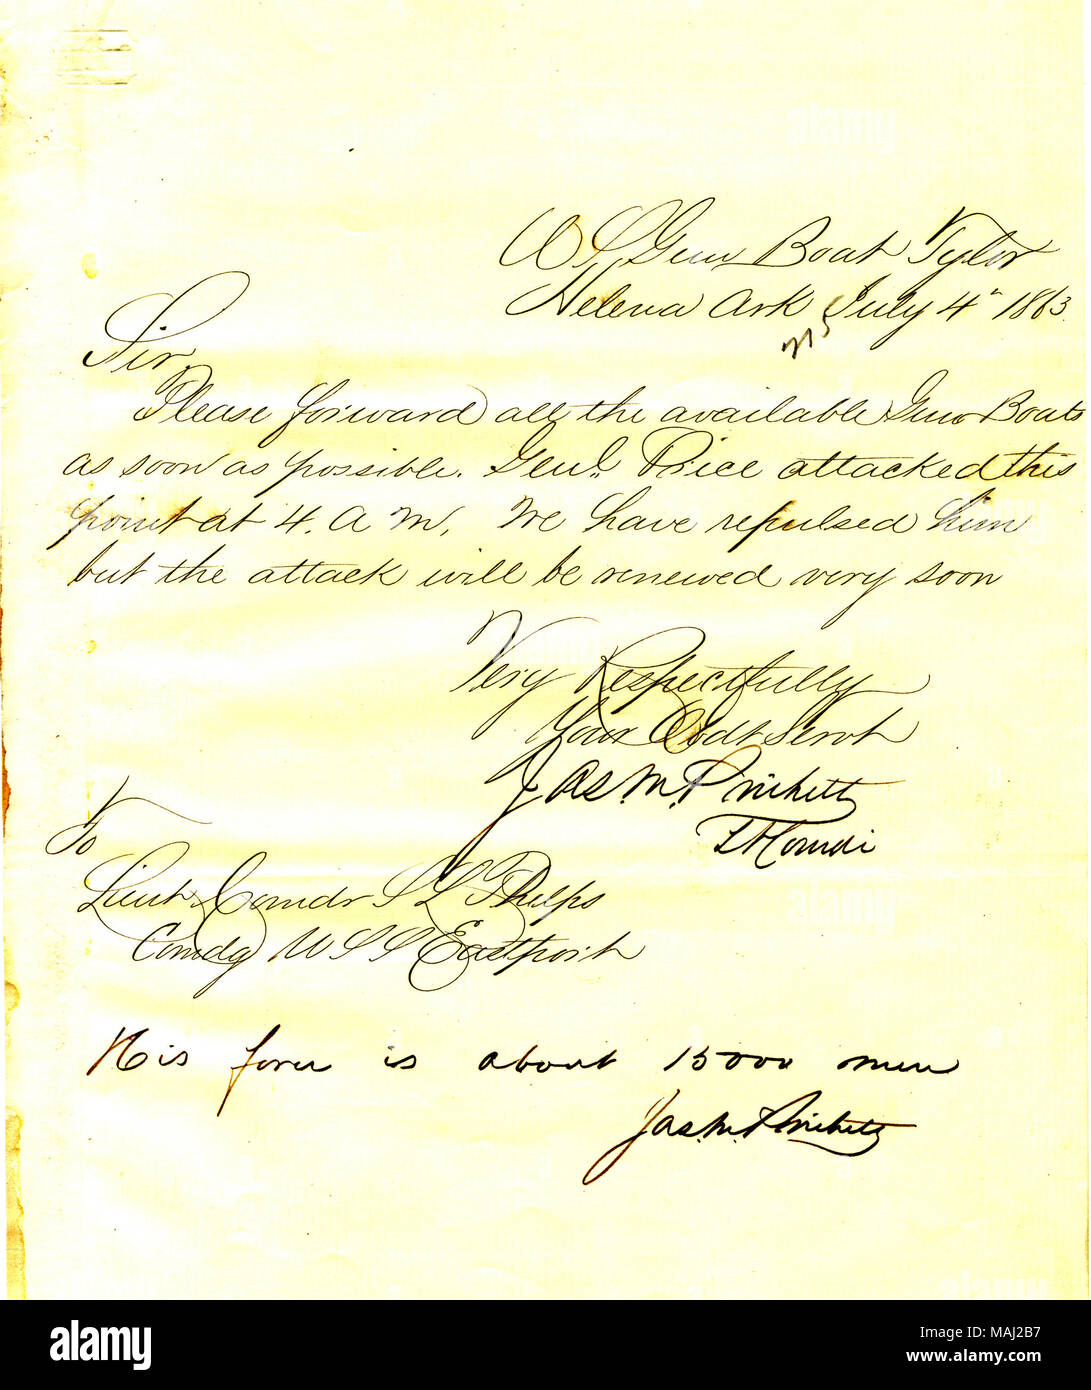 U S Gun Boat Tyler
Helena Ark July 4" 1863.
Sir,
Please forward all the available Gun Boats
as soon as possible. Genl. Price attacked this
point at 4. A M. We have repulsed him
but the attack will be renewed very soon
Very Respectfully
Your Obdt Servt
Jas. M. Prichett
Lt Comdr
To
Lieut Comdr S L Phelps
Comdg U S S Eastport
His force is about 15000 men
Jas. M. Prichett
alamy
Image ID: MAJ2B7
www.alamy.com